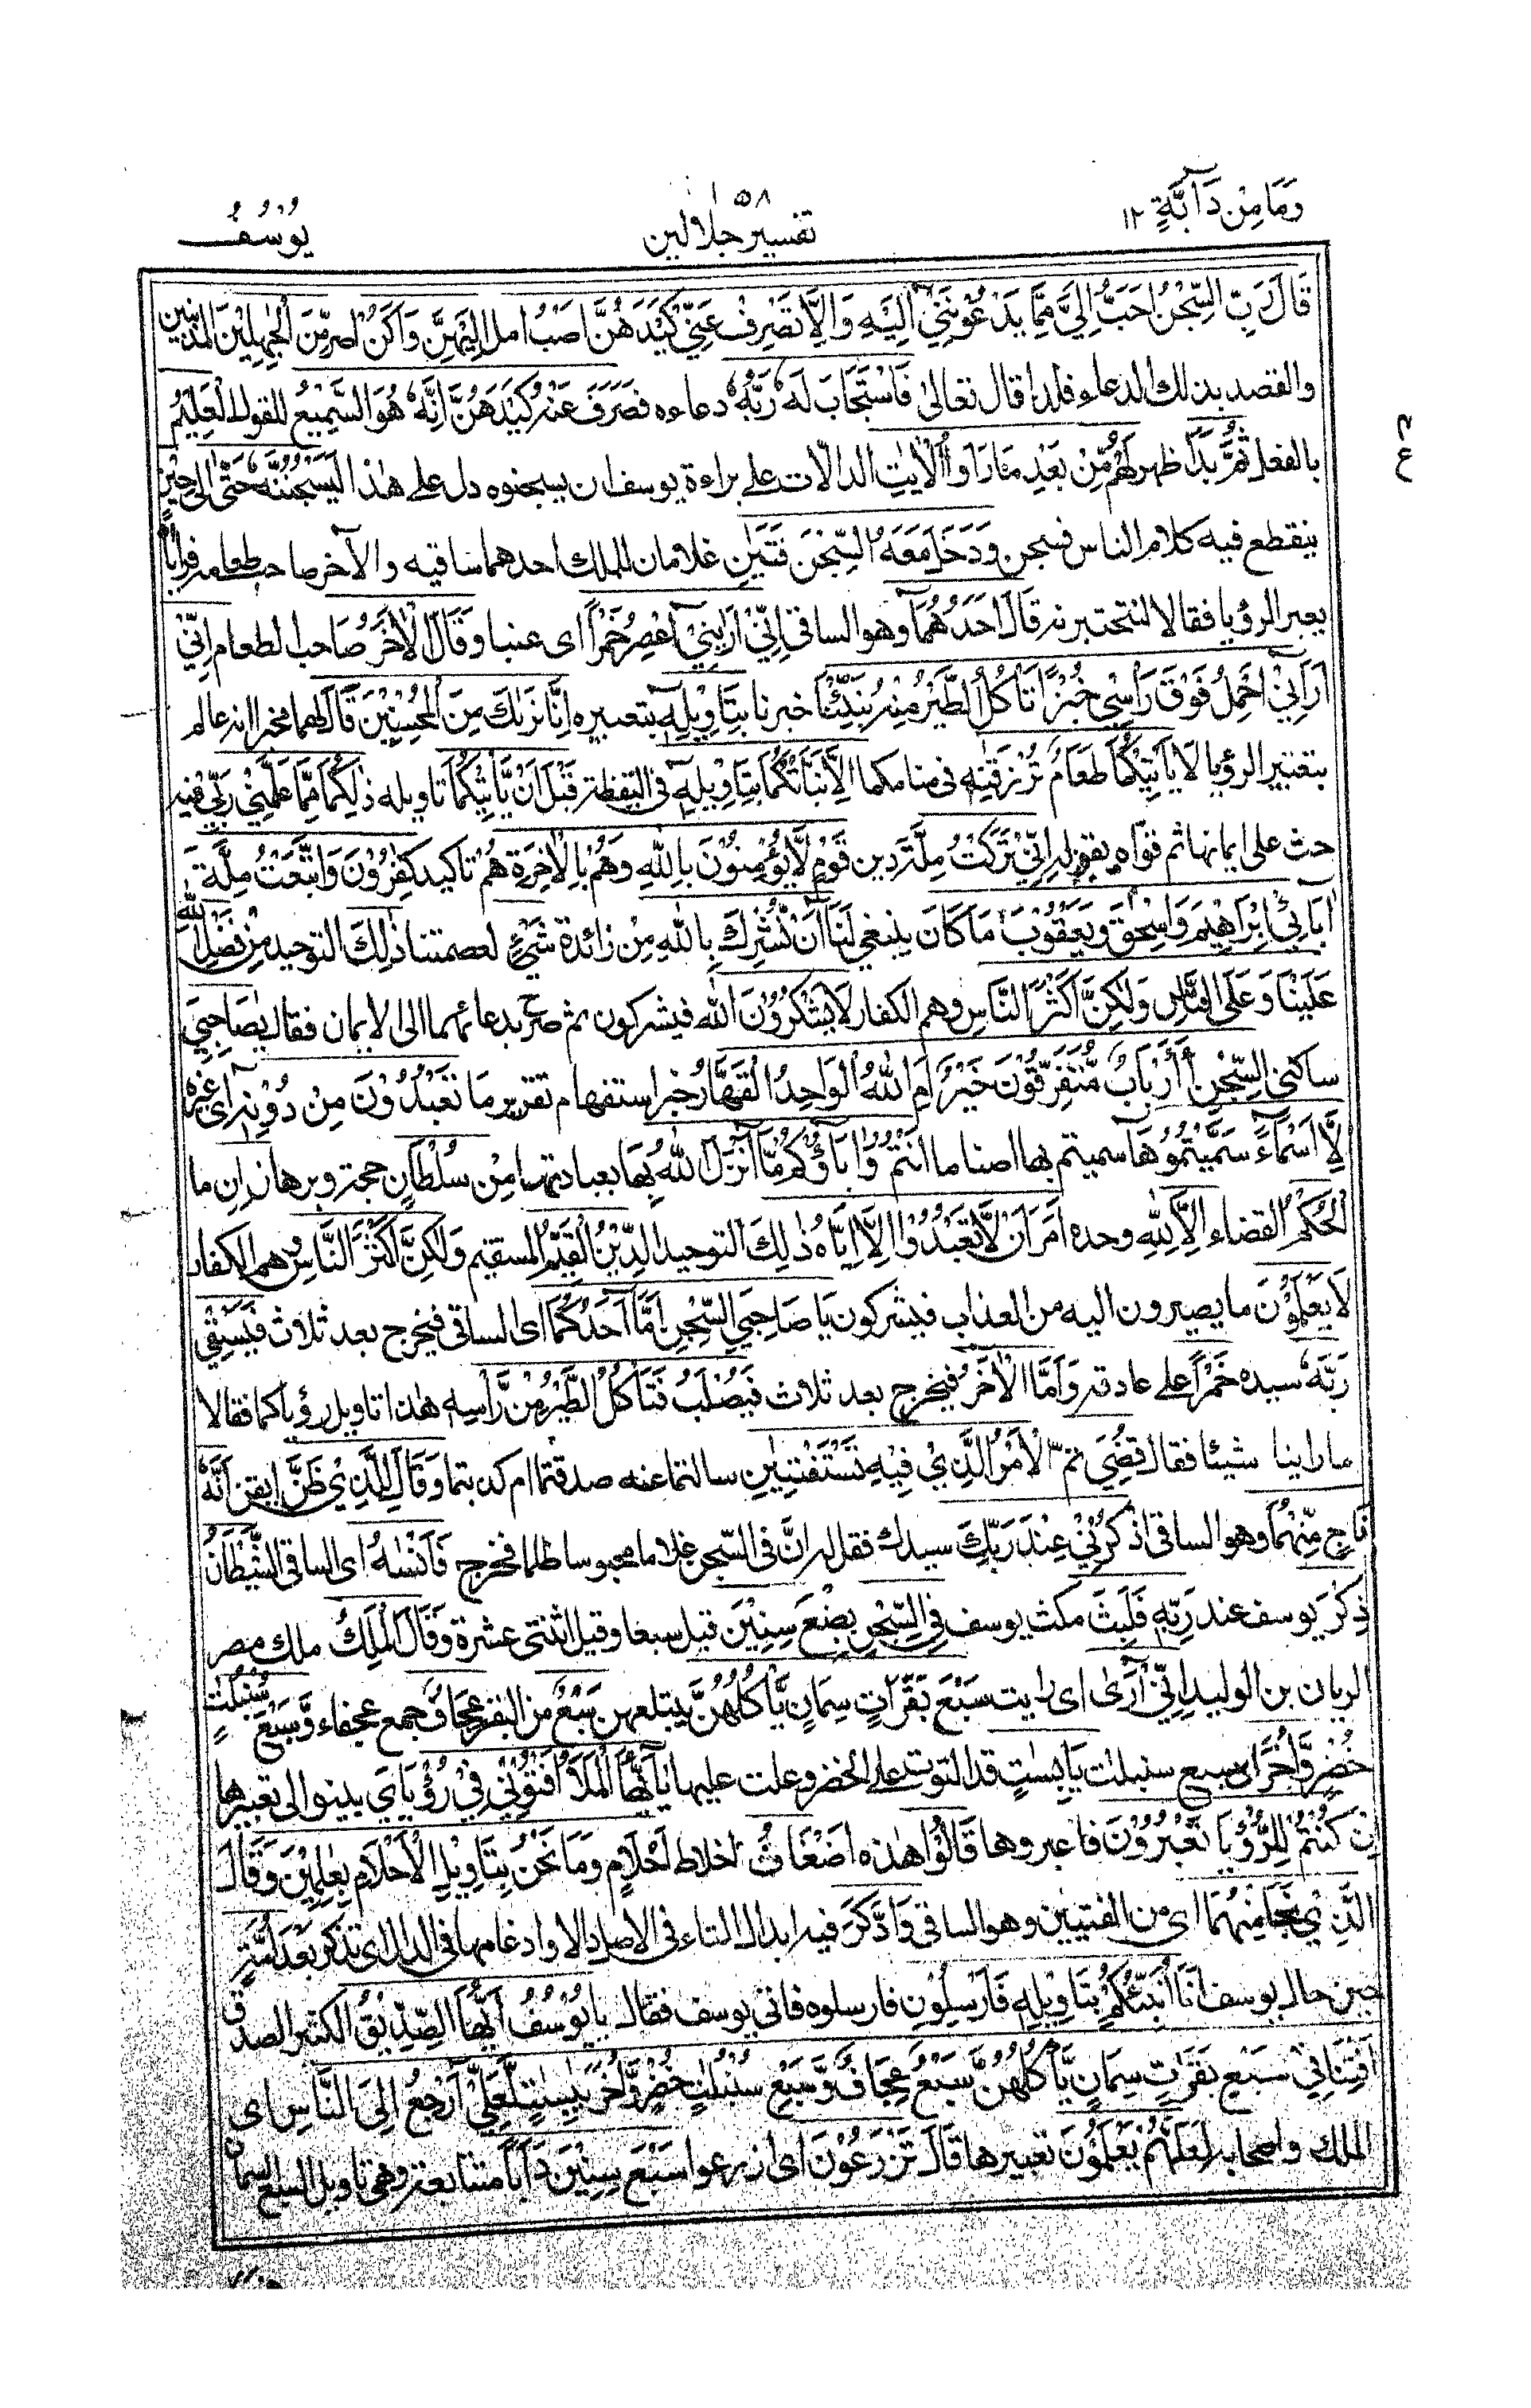 وَمَا مِنْ دَآبَّةٍ ١٢
١٥٨
تفسير جلالين
يُوْسُف
قَالَ رَبِّ السِّجْنُ اَحَبُّ اِلَيَّ مِمَّا يَدْعُوْنَنِيْۤ اِلَيْهِ وَاِلَّا تَصْرِفْ عَنِّيْ كَيْدَهُنَّ اَصْبُ امل اِلَيْهِنَّ وَاَكُنْ اصر مِّنَ الْجٰهِلِيْنَ المذنبين
والقصد بذلك الدعاء فلذا قال تعالىٰ فَاسْتَجَابَ لَهٗ رَبُّهٗ دعاءه فَصَرَفَ عَنْهُ كَيْدَهُنَّ اِنَّهٗ هُوَ السَّمِيْعُ للقول الْعَلِيْمُ
بالفعل ثُمَّ بَدَا ظهر لَهُمْ مِّنْ بَعْدِ مَا رَاَوُا الْاٰيٰتِ الدالات على براءة يوسف ان يسجنوه دل على هذا لَيَسْجُنُنَّهٗ حَتّٰى اِلى حِيْنٍ
ينقطع فيه كلام الناس فسجن وَدَخَلَ مَعَهُ السِّجْنَ فَتَيٰنِ غلامان للملك احدهما ساقيه والآخر صاحب طعامه فراياه
يعبر الرؤيا فقالا لنختبرنه قَالَ اَحَدُهُمَاۤ وهو الساقى اِنِّيْۤ اَرٰىنِيْۤ اَعْصِرُ خَمْرًا اى عنبا وَقَالَ الْاٰخَرُ صاحب الطعام اِنِّيْۤ
اَرٰىنِيْۤ اَحْمِلُ فَوْقَ رَاْسِيْ خُبْزًا تَاْكُلُ الطَّيْرُ مِنْهُ نَبِّئْنَا خبرنا بِتَاْوِيْلِهٖ بتعبيره اِنَّا نَرٰىكَ مِنَ الْمُحْسِنِيْنَ قَالَ لهما مخبرا انه عالم
بتعبير الرؤيا لَا يَاْتِيْكُمَا طَعَامٌ تُرْزَقٰنِهٖ فى منامكما اِلَّا نَبَّاْتُكُمَا بِتَاْوِيْلِهٖ فى اليقظة قَبْلَ اَنْ يَّاْتِيَكُمَا تاويله ذٰلِكُمَا مِمَّا عَلَّمَنِيْ رَبِّيْ فيه
حث على ايمانهما ثم قوّاه بقوله اِنِّيْ تَرَكْتُ مِلَّةَ دين قَوْمٍ لَّا يُؤْمِنُوْنَ بِاللّٰهِ وَهُمْ بِالْاٰخِرَةِ هُمْ تاكيد كٰفِرُوْنَ وَاتَّبَعْتُ مِلَّةَ
اٰبَآئِيْۤ اِبْرَاهِيْمَ وَاِسْحٰقَ وَيَعْقُوْبَ مَا كَانَ ينبغي لَنَاۤ اَنْ نُّشْرِكَ بِاللّٰهِ مِنْ زائدة شَيْءٍ لعصمتنا ذٰلِكَ التوحيد مِنْ فَضْلِ اللّٰهِ
عَلَيْنَا وَعَلَى النَّاسِ وَلٰكِنَّ اَكْثَرَ النَّاسِ وهم الكفار لَا يَشْكُرُوْنَ الله فيشركون ثم صرح بدعائهما الى الايمان فقال يٰصَاحِبَيِ
ساكنى السِّجْنِ ءَاَرْبَابٌ مُّتَفَرِّقُوْنَ خَيْرٌ اَمِ اللّٰهُ الْوَاحِدُ الْقَهَّارُ خير استفهام تقرير مَا تَعْبُدُوْنَ مِنْ دُوْنِهٖۤ اى غيره
اِلَّاۤ اَسْمَآءً سَمَّيْتُمُوْهَاۤ سميتم بها اصناما اَنْتُمْ وَاٰبَآؤُكُمْ مَّاۤ اَنْزَلَ اللّٰهُ بِهَا بعبادتها مِنْ سُلْطَانٍ حجة وبرهان اِنِ ما
الْحُكْمُ القضاء اِلَّا لِلّٰهِ وحده اَمَرَ اَنْ لَّا تَعْبُدُوْۤا اِلَّاۤ اِيَّاهُ ذٰلِكَ التوحيد الدِّيْنُ الْقَيِّمُ المستقيم وَلٰكِنَّ اَكْثَرَ النَّاسِ وهم الكفار
لَا يَعْلَمُوْنَ ما يصيرون اليه من العذاب فيشركون يَا صَاحِبَيِ السِّجْنِ اَمَّاۤ اَحَدُكُمَا اى الساقى فيخرج بعد ثلاث فَيَسْقِيْ
رَبَّهٗ سيده خَمْرًا على عادته وَاَمَّا الْاٰخَرُ فيخرج بعد ثلاث فَيُصْلَبُ فَتَاْكُلُ الطَّيْرُ مِنْ رَّاْسِهٖ هذا تاويل رؤياكما فقالا
ما راينا شيئا فقال قُضِيَ تم الْاَمْرُ الَّذِيْ فِيْهِ تَسْتَفْتِيٰنِ سالتما عنه صدقتما ام كذبتما وَقَالَ لِلَّذِيْ ظَنَّ ايقن اَنَّهٗ
نَاجٍ مِّنْهُمَا وهو الساقى اذْكُرْنِيْ عِنْدَ رَبِّكَ سيدك فقل له ان فى السجن غلاما محبوسا ظلما فخرج فَاَنْسٰهُ اى الساقى الشَّيْطَانُ
ذِكْرَ يوسف عند رَبِّهٖ فَلَبِثَ مكث يوسف فِي السِّجْنِ بِضْعَ سِنِيْنَ قيل سبعا وقيل اثنتى عشرة وَقَالَ الْمَلِكُ ملك مصر
الريان بن الوليد اِنِّيْۤ اَرٰى اى رايت سَبْعَ بَقَرَاتٍ سِمَانٍ يَّاْكُلُهُنَّ يبتلعهن سَبْعٌ من البقر عِجَافٌ جمع عجفاء وَّسَبْعَ سُنْبُلٰتٍ
خُضْرٍ وَّاُخَرَ اى سبع سنبلت يٰبِسٰتٍ قد التوت على الخضر وعلت عليها يٰۤاَيُّهَا الْمَلَاُ اَفْتُوْنِيْ فِيْ رُؤْيَايَ بينوا لى تعبيرها
اِنْ كُنْتُمْ لِلرُّؤْيَا تَعْبُرُوْنَ فاعبروها قَالُوْۤا هذه اَضْغَاثُ اخلاط اَحْلَامٍ وَمَا نَحْنُ بِتَاْوِيْلِ الْاَحْلَامِ بِعٰلِمِيْنَ وَقَالَ
الَّذِيْ نَجَا مِنْهُمَا اى من الفتيين وهو الساقى وَادَّكَرَ فيه ابدال التاء فى الاصل دالا وادغامها فى الدال اى تذكر بَعْدَ اُمَّةٍ
حين حال يوسف اَنَا اُنَبِّئُكُمْ بِتَاْوِيْلِهٖ فَاَرْسِلُوْنِ فارسلوه فاتى يوسف فقال يا يُوْسُفُ اَيُّهَا الصِّدِّيْقُ الكثير الصدق
اَفْتِنَا فِيْ سَبْعِ بَقَرٰتٍ سِمَانٍ يَّاْكُلُهُنَّ سَبْعٌ عِجَافٌ وَّسَبْعِ سُنْبُلٰتٍ خُضْرٍ وَّاُخَرَ يٰبِسٰتٍ لَّعَلِّيْۤ اَرْجِعُ اِلَى النَّاسِ اى
الملك واصحابه لَعَلَّهُمْ يَعْلَمُوْنَ تعبيرها قَالَ تَزْرَعُوْنَ اى ازرعوا سَبْعَ سِنِيْنَ دَاَبًا متتابعة وهى تاويل السبع السمان